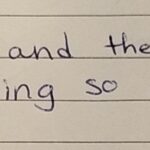 and the
ing so